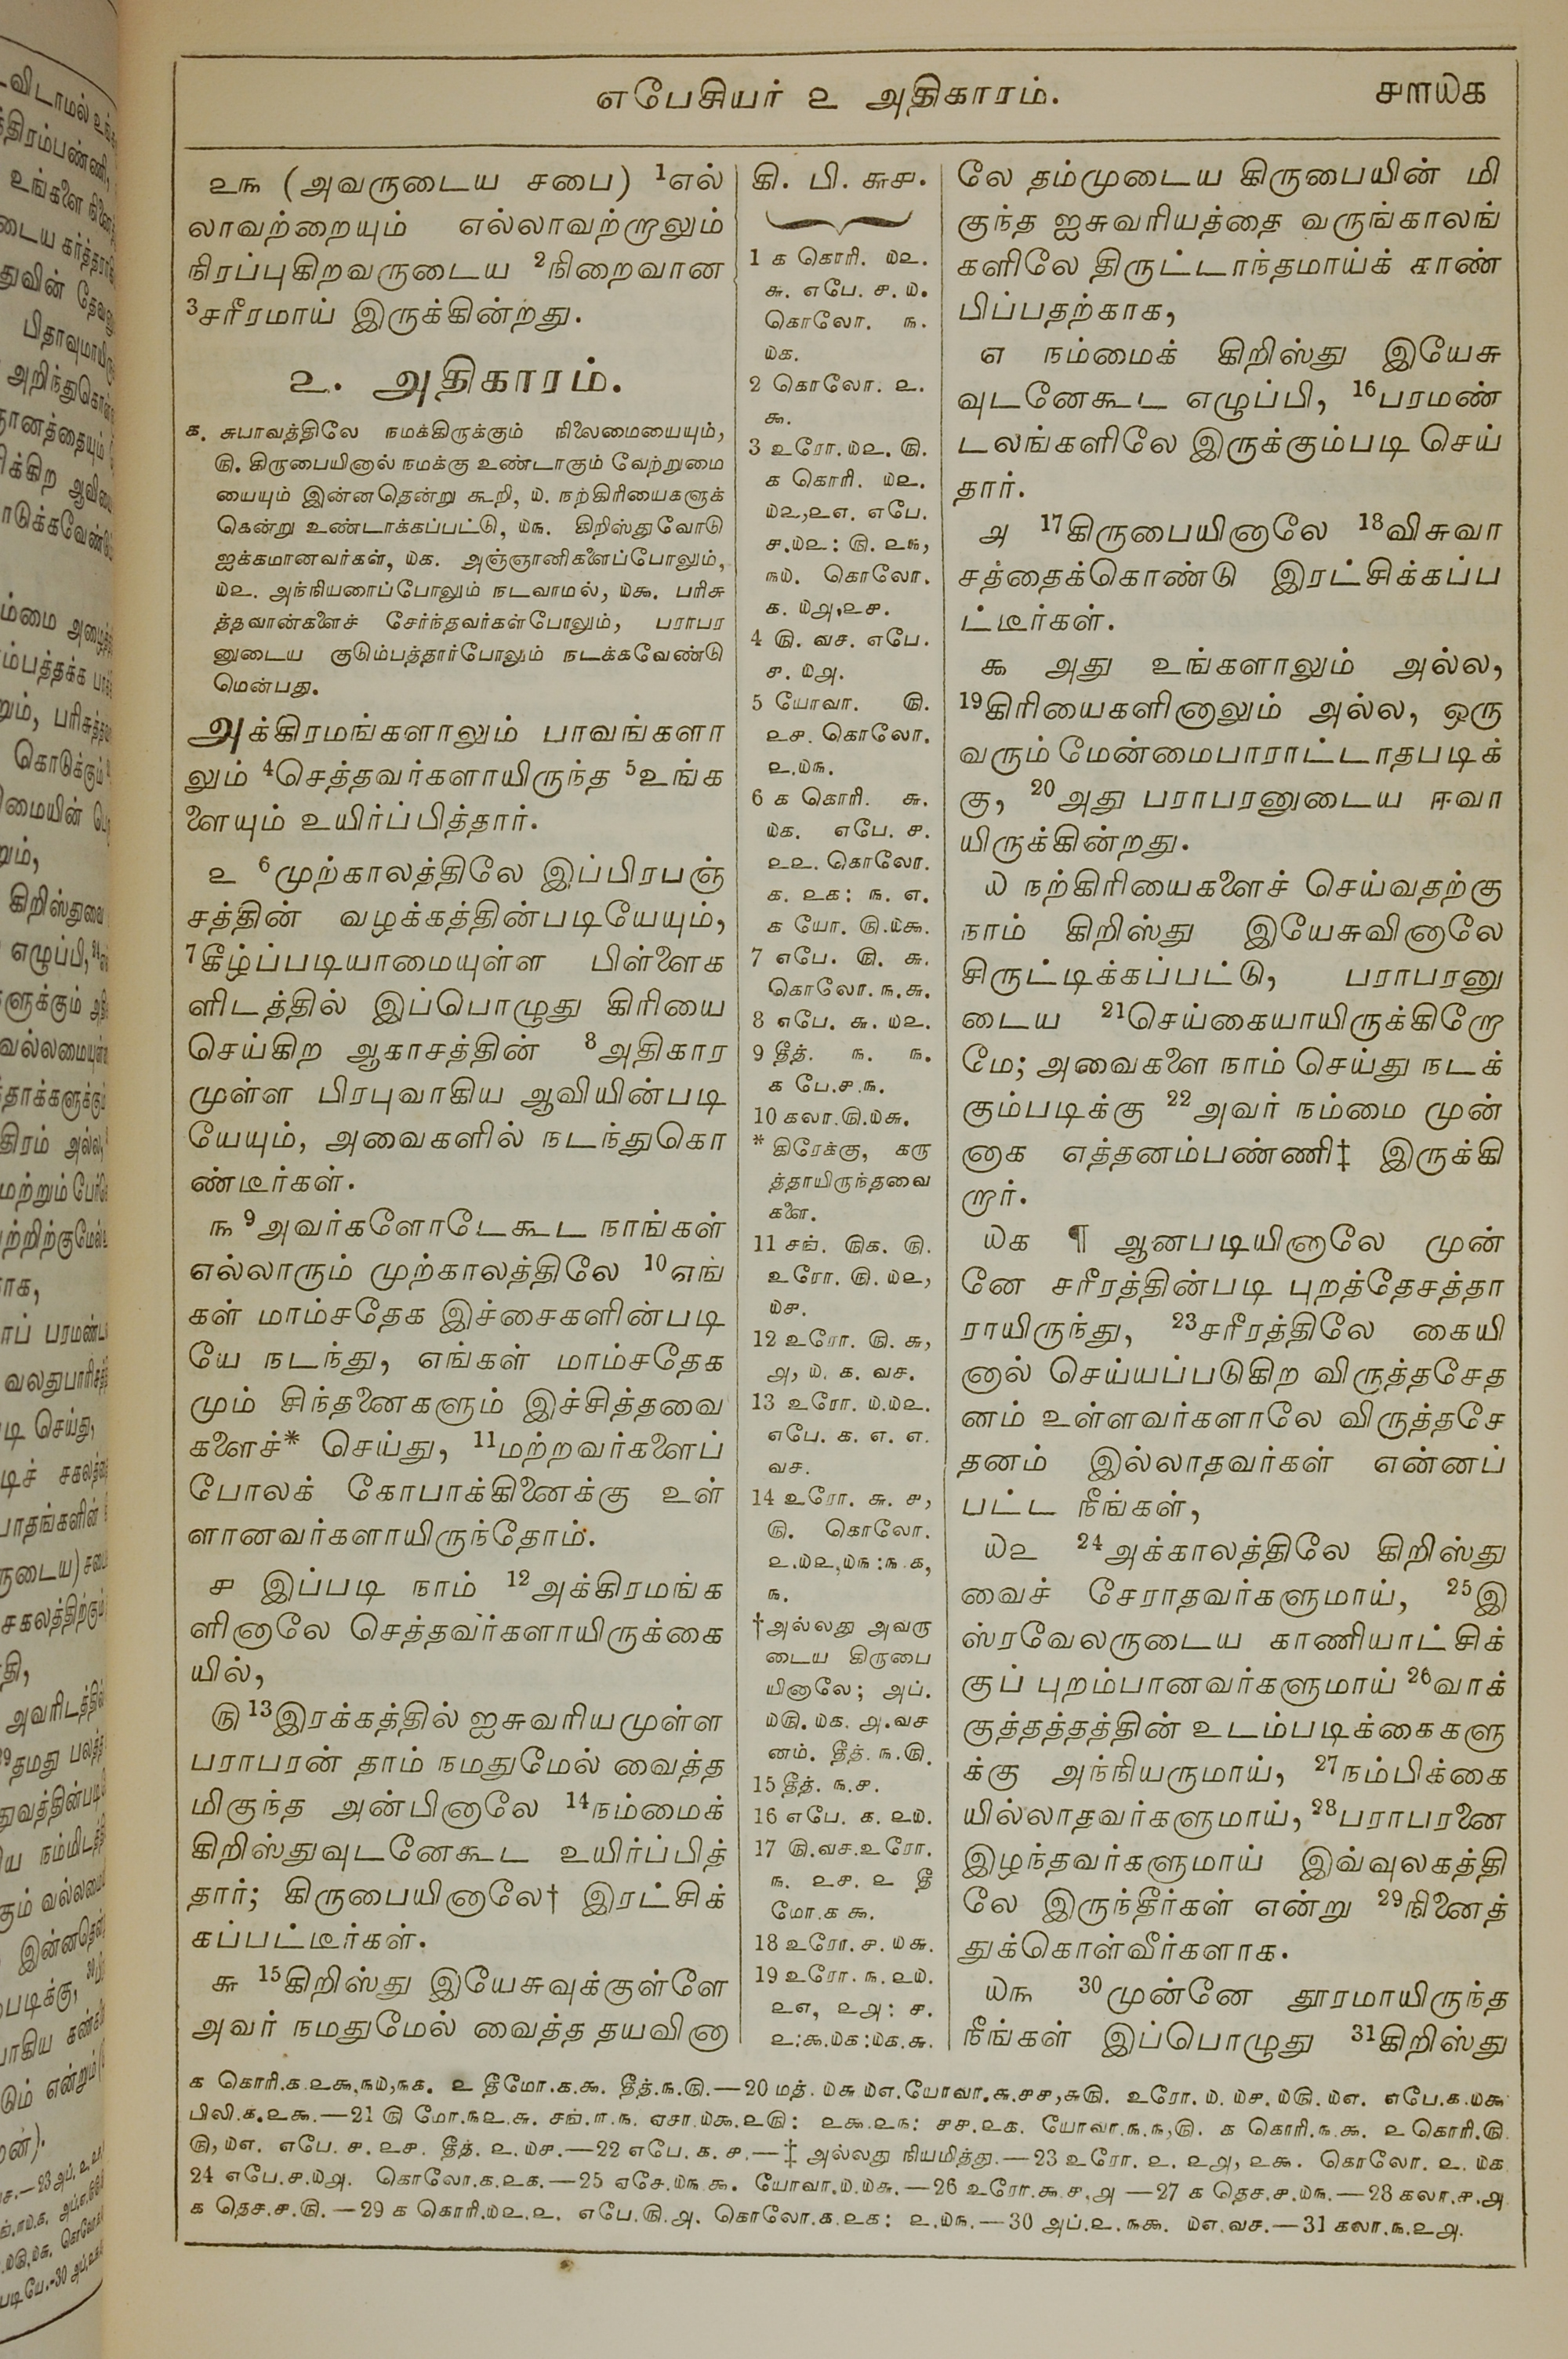 எபேசியர் ௨ அதிகாரம்.
௪௱௰௧
௨௩ (அவருடைய சபை) 1எல்
லாவற்றையும் எல்லாவற்றாலும்
நிரப்புகிறவருடைய 2நிறைவான
3சரீரமாய் இருக்கின்றது.
௨. அதிகாரம்.
௧. சுபாவத்திலே நமக்கிருக்கும் நிலைமையையும்,
௫. கிருபையினால் நமக்கு உண்டாகும் வேற்றுமை
யையும் இன்னதென்று கூறி, ௰. நற்கிரியைகளுக்
கென்று உண்டாக்கப்பட்டு, ௰௩. கிறிஸ்துவோடு
ஐக்கமானவர்கள், ௰௧. அஞ்ஞானிகளைப்போலும்,
௰௨. அந்நியரைப்போலும் நடவாமல், ௰௯. பரிசு
த்தவான்களைச் சேர்ந்தவர்கள்போலும், பராபர
னுடைய குடும்பத்தார்போலும் நடக்கவேண்டு
மென்பது.
அக்கிரமங்களாலும் பாவங்களா
லும் 4செத்தவர்களாயிருந்த 5உங்க
ளையும் உயிர்ப்பித்தார்.
௨ 6முற்காலத்திலே இப்பிரபஞ்
சத்தின் வழக்கத்தின்படியேயும்,
7கீழ்ப்படியாமையுள்ள பிள்ளைக
ளிடத்தில் இப்பொழுது கிரியை
செய்கிற ஆகாசத்தின் 8அதிகார
முள்ள பிரபுவாகிய ஆவியின்படி
யேயும், அவைகளில் நடந்துகொ
ண்டீர்கள்.
௩ 9அவர்களோடேகூட நாங்கள்
எல்லாரும் முற்காலத்திலே 10எங்
கள் மாம்சதேக இச்சைகளின்படி
யே நடந்து, எங்கள் மாம்சதேக
மும் சிந்தனைகளும் இச்சித்தவை
களைச்* செய்து, 11மற்றவர்களைப்
போலக் கோபாக்கினைக்கு உள்
ளானவர்களாயிருந்தோம்.
௪ இப்படி நாம் 12அக்கிரமங்க
ளினாலே செத்தவர்களாயிருக்கை
யில்,
௫ 13இரக்கத்தில் ஐசுவரியமுள்ள
பராபரன் தாம் நமதுமேல் வைத்த
மிகுந்த அன்பினாலே 14நம்மைக்
கிறிஸ்துவுடனேகூட உயிர்ப்பித்
தார்; கிருபையினாலே† இரட்சிக்
கப்பட்டீர்கள்.
௬ 15கிறிஸ்து இயேசுவுக்குள்ளே
அவர் நமதுமேல் வைத்த தயவினா
கி. பி. ௬௪.
1 ௧ கொரி. ௰௨.
௬. எபே. ௪. ௰.
கொலோ. ௩.
௰௧.
2 கொலோ. ௨.
௯.
3 உரோ.௰௨. ௫.
௧ கொரி. ௰௨.
௰௨,௨௭. எபே.
௪.௰௨: ௫. ௨௩,
௩௰. கொலோ.
௧. ௰௮,௨௪.
4 ௫. வச. எபே.
௪. ௰௮.
5 யோவா. ௫.
௨௪. கொலோ.
௨.௰௩.
6 ௧ கொரி. ௬.
௰௧. எபே. ௪.
௨௨. கொலோ.
௧. ௨௧: ௩. ௭.
௧ யோ. ௫.௰௯.
7 எபே. ௫. ௬.
கொலோ.௩.௬.
8 எபே. ௬. ௰௨.
9 தீத். ௩. ௩.
௧ பே.௪.௩.
10 கலா.௫.௰௬.
* கிரேக்கு, கரு
த்தாயிருந்தவை
களை.
11 சங். ௫௧. ௫.
உரோ. ௫. ௰௨,
௰௪.
12 உரோ. ௫. ௬,
௮, ௰. ௧. வச.
13 உரோ. ௰.௰௨.
எபே. ௧. ௭. ௭.
வச.
14 உரோ. ௬. ௪,
௫. கொலோ.
௨.௰௨,௰௩:௩.௧,
௩.
†அல்லது அவரு
டைய கிருபை
யினாலே; அப்.
௰௫. ௰௧. ௮.வச
னம். தீத். ௩.௫.
15 தீத். ௩.௪.
16 எபே. ௧. ௨௰.
17 ௫.வச.உரோ.
௩. ௨௪. ௨ தீ
மோ.௧ ௯.
18 உரோ. ௪. ௰௬.
19 உரோ. ௩. ௨௰.
௨௭, ௨௮: ௪.
௨:௯.௰௧:௰௧.௬.
லே தம்முடைய கிருபையின் மி
குந்த ஐசுவரியத்தை வருங்காலங்
களிலே திருட்டாந்தமாய்க் காண்
பிப்பதற்காக,
௭ நம்மைக் கிறிஸ்து இயேசு
வுடனேகூட எழுப்பி, 16பரமண்
டலங்களிலே இருக்கும்படி செய்
தார்.
௮ 17கிருபையினாலே 18விசுவா
சத்தைக்கொண்டு இரட்சிக்கப்ப
ட்டீர்கள்.
௯ அது உங்களாலும் அல்ல,
19கிரியைகளினாலும் அல்ல, ஒரு
வரும் மேன்மைபாராட்டாதபடிக்
கு, 20அது பராபரனுடைய ஈவா
யிருக்கின்றது.
௰ நற்கிரியைகளைச் செய்வதற்கு
நாம் கிறிஸ்து இயேசுவினாலே
சிருட்டிக்கப்பட்டு, பராபரனு
டைய 21செய்கையாயிருக்கிறோ
மே; அவைகளை நாம் செய்து நடக்
கும்படிக்கு 22அவர் நம்மை முன்
னாக எத்தனம்பண்ணி‡ இருக்கி
றார்.
௰௧ ¶ ஆனபடியினாலே முன்
னே சரீரத்தின்படி புறத்தேசத்தா
ராயிருந்து, 23சரீரத்திலே கையி
னால் செய்யப்படுகிற விருத்தசேத
னம் உள்ளவர்களாலே விருத்தசே
தனம் இல்லாதவர்கள் என்னப்
பட்ட நீங்கள்,
௰௨ 24அக்காலத்திலே கிறிஸ்து
வைச் சேராதவர்களுமாய், 25இ
ஸ்ரவேலருடைய காணியாட்சிக்
குப் புறம்பானவர்களுமாய் 26வாக்
குத்தத்தத்தின் உடம்படிக்கைகளு
க்கு அந்நியருமாய், 27நம்பிக்கை
யில்லாதவர்களுமாய், 28பராபரனை
இழந்தவர்களுமாய் இவ்வுலகத்தி
லே இருந்தீர்கள் என்று 29நினைத்
துக்கொள்வீர்களாக.
௰௩ 30முன்னே தூரமாயிருந்த
நீங்கள் இப்பொழுது 31கிறிஸ்து
௧ கொரி.௧.௨௯,௩௰,௩௧. ௨ தீமோ.௧.௯. தீத்.௩.௫.—20 மத். ௰௬ ௰௭.யோவா.௬.௪௪,௬௫. உரோ. ௰. ௰௪. ௰௫. ௰௭. எபே.௧.௰௯
பிலி.௧.௨௯.—21 ௫ மோ.௩௨.௬. சங்.௱.௩. ஏசா.௰௯.௨௫: ௨௯.௨௩: ௪௪.௨௧. யோவா.௩.௩,௫. ௧ கொரி.௩.௯. ௨ கொரி.௫.
௫,௰௭. எபே. ௪. ௨௪. தீத். ௨. ௰௪.—22 எபே. ௧. ௪.—‡ அல்லது நியமித்து.—23 உரோ. ௨. ௨௮, ௨௯. கொலோ. ௨. ௰௧
24 எபே.௪.௰௮. கொலோ.௧.௨௧.—25 ஏசே.௰௩.௯. யோவா.௰.௰௬.—26 உரோ.௯.௪,௮ —27 ௧ தெச.௪.௰௩.—28 கலா.௪.௮.
௧ தெச.௪.௫.—29 ௧ கொரி.௰௨.௨. எபே.௫.௮. கொலோ.௧.௨௧: ௨.௰௩.—30 அப்.௨.௩௯. ௰௭.வச.—31 கலா.௩.௨௮.